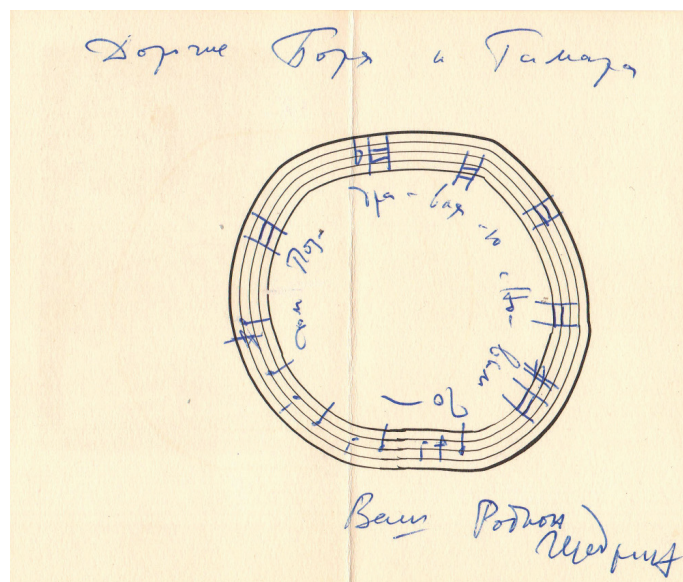 Дорогие Боря и Тамара
Поз-
дра-
вля-
ю
с Но-
вым
го-
дом
Ваш Родион
Щедрин